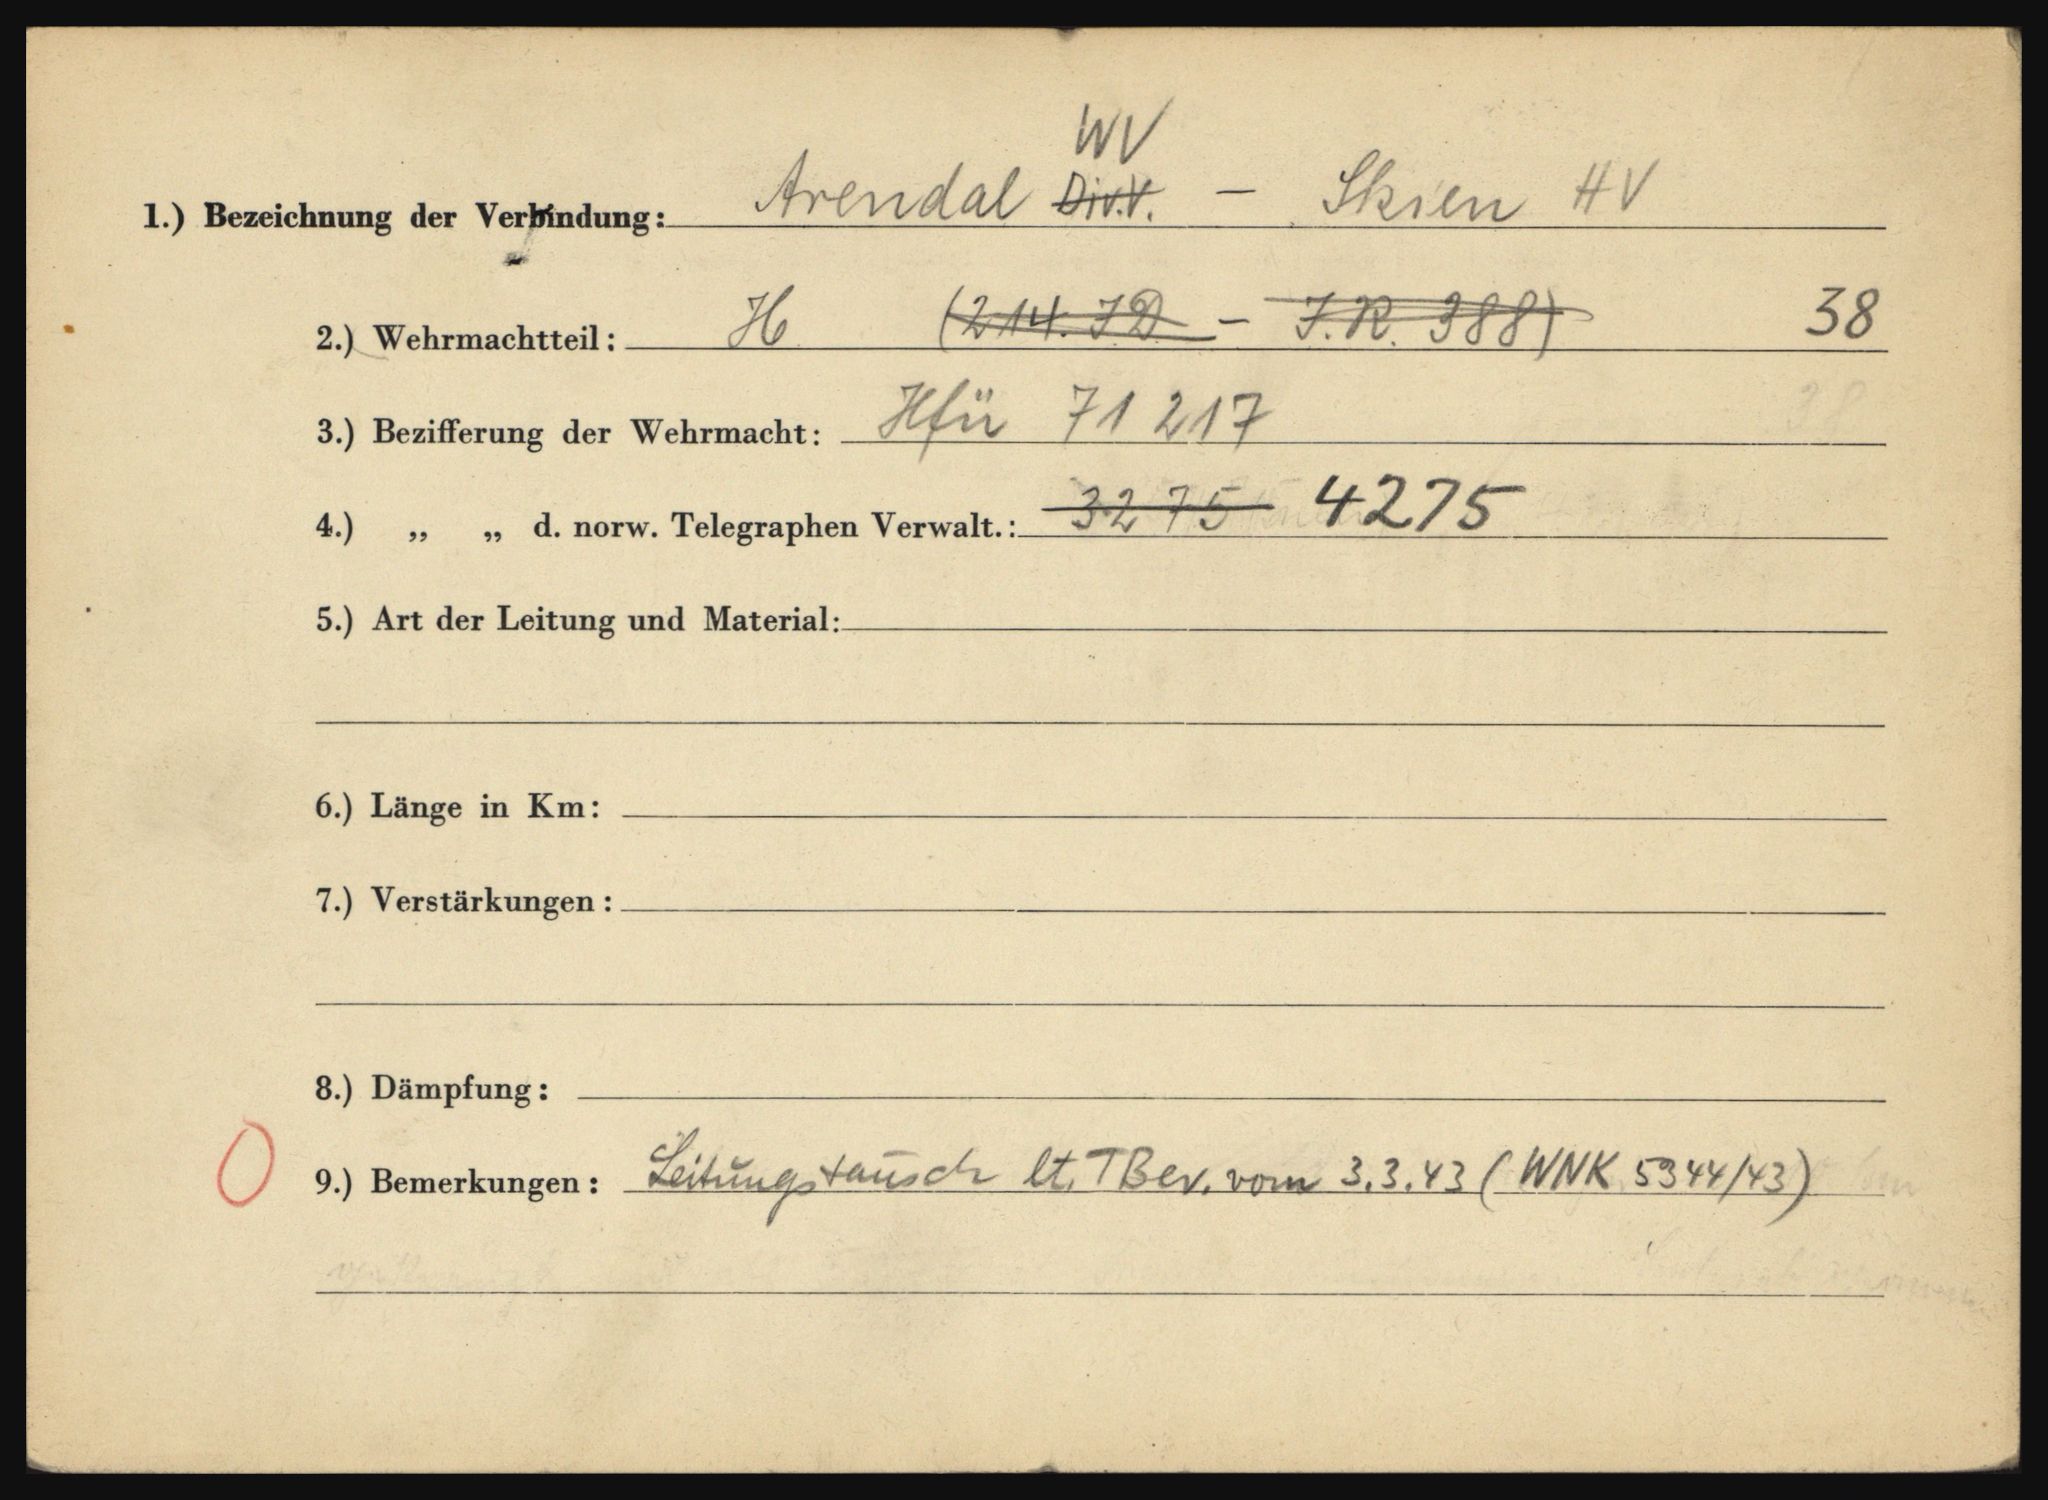 WV
1.) Bezeichnung der Verbindung: Arendal Div.V. – Skien HV
2.) Wehrmachtteil: H (214. ID – I.R. 388) 38
3.) Bezifferung der Wehrmacht: Hfü 71 217 38
4.) „ „ d. norw. Telegraphen Verwalt.: 3275 4275
5.) Art der Leitung und Material:
6.) Länge in Km:
7.) Verstärkungen:
8.) Dämpfung:
9.) Bemerkungen: Leitungstausch lt. TBev. vom 3.3.43 (WNK 5344/43)